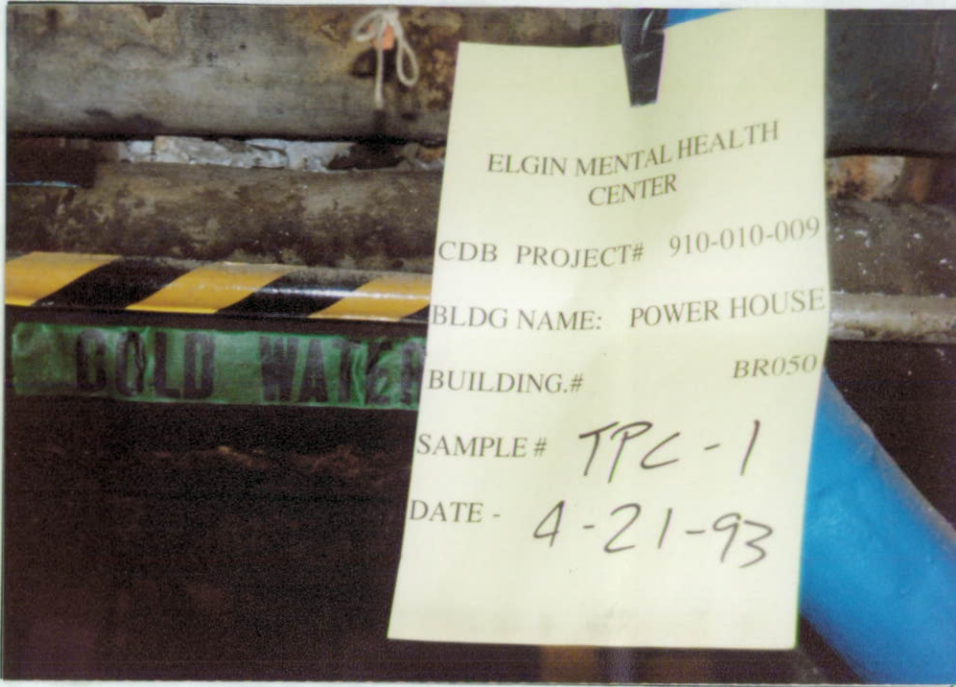 ELGIN MENTAL HEALTH
CENTER
CDB PROJECT# 910-010-009
BLDG NAME: POWER HOUSE
BUILDING.# BR050
SAMPLE # TPC-1
DATE - 4-21-93
COLD WATER